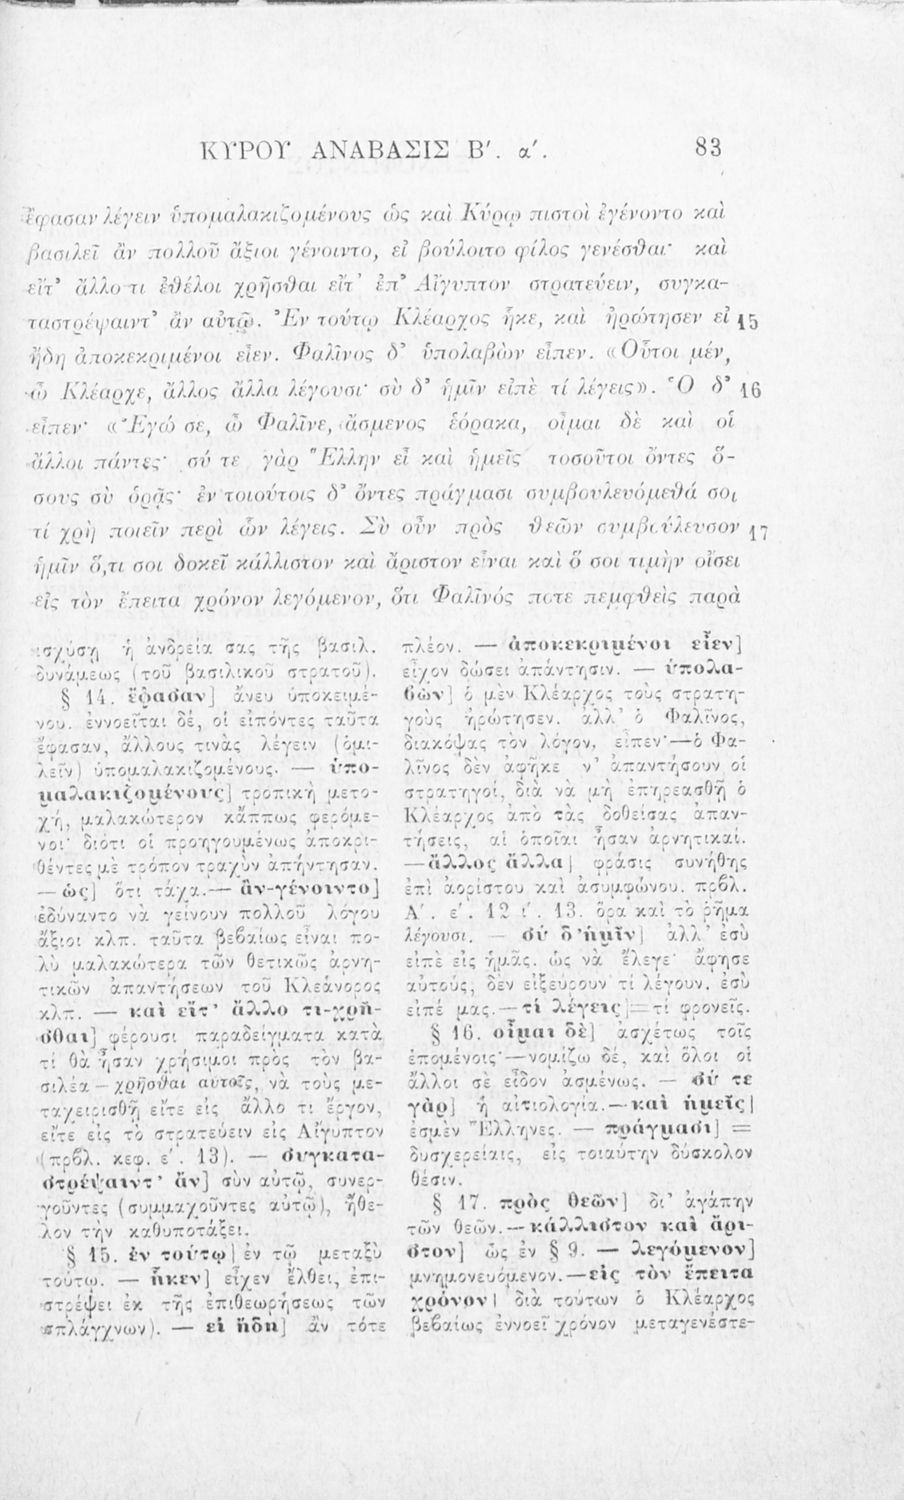 ΚΥΡΟΥ ΑΝΑΒΑΣΙΣ Β'. α'. 83
ἔφασαν λέγειν ὑπομαλακιζομένους ὡς καὶ Κύρῳ πιστοὶ ἐγένοντο καὶ
βασιλεῖ ἂν πολλοῦ ἄξιοι γένοιντο, εἰ βούλοιτο φίλος γενέσθαι· καὶ
εἴτ' ἄλλο τι ἐθέλοι χρῆσθαι εἴτ' ἐπ' Αἴγυπτον στρατεύειν, συγκα-
ταστρέψαιντ' ἂν αὐτῷ. Ἐν τούτῳ Κλέαρχος ἧκε, καὶ ἠρώτησεν εἰ 15
ἤδη ἀποκεκριμένοι εἶεν. Φαλῖνος δ' ὑπολαβὼν εἶπεν. «Οὗτοι μέν,
ὦ Κλέαρχε, ἄλλος ἄλλα λέγουσι· σὺ δ' ἡμῖν εἰπὲ τί λέγεις». Ὁ δ' 16
εἶπεν· «Ἐγώ σε, ὦ Φαλῖνε, ἄσμενος ἑόρακα, οἶμαι δὲ καὶ οἱ
ἄλλοι πάντες· σύ τε γὰρ Ἕλλην εἶ καὶ ἡμεῖς τοσοῦτοι ὄντες ὅ-
σους σὺ ὁρᾷς· ἐν τοιούτοις δ' ὄντες πράγμασι συμβουλευόμεθά σοι
τί χρὴ ποιεῖν περὶ ὧν λέγεις. Σὺ οὖν πρὸς θεῶν συμβούλευσον 17
ἡμῖν ὅ,τι σοι δοκεῖ κάλλιστον καὶ ἄριστον εἶναι καὶ ὅ σοι τιμὴν οἴσει
εἰς τὸν ἔπειτα χρόνον λεγόμενον, ὅτι Φαλῖνός ποτε πεμφθεὶς παρὰ
ισχύσῃ ἡ ἀνδρεία σας τῆς βασιλ.
δυνάμεως (τοῦ βασιλικοῦ στρατοῦ).
§ 14. ἔφασαν] ἄνευ ὑποκειμέ-
νου. ἐννοεῖται δέ, οἱ εἰπόντες ταῦτα
ἔφασαν, ἄλλους τινὰς λέγειν (ὁμι-
λεῖν) ὑπομαλακιζομένους. — ὑπο-
μαλακιζομένους] τροπικὴ μετο-
χή, μαλακώτερον κἄππως φερόμε-
νοι· διότι οἱ προηγουμένως ἀποκρι-
θέντες μὲ τρόπον τραχὺν ἀπήντησαν.
— ὡς] ὅτι τάχα. — ἂν-γένοιντο]
ἐδύναντο νὰ γείνουν πολλοῦ λόγου
ἄξιοι κλπ. ταῦτα βεβαίως εἶναι πο-
λὺ μαλακώτερα τῶν θετικῶς ἀρνη-
τικῶν ἀπαντήσεων τοῦ Κλεάνορος
κλπ. — καὶ εἴτ' ἄλλο τι-χρῆ-
σθαι] φέρουσι παραδείγματα κατὰ
τί θὰ ἦσαν χρήσιμοι πρὸς τὸν βα-
σιλέα — χρῆσθαι αὐτοῖς, νὰ τοὺς με-
ταχειρισθῇ εἴτε εἰς ἄλλο τι ἔργον,
εἴτε εἰς τὸ στρατεύειν εἰς Αἴγυπτον
(πρβλ. κεφ. ε'. 13). — συγκατα-
στρέψαιντ' ἂν] σὺν αὐτῷ, συνερ-
γοῦντες (συμμαχοῦντες αὐτῷ), ἤθε-
λον τὴν καθυποτάξει.
§ 15. ἐν τούτῳ] ἐν τῷ μεταξὺ
τούτῳ. — ἧκεν] εἶχεν ἔλθει, ἐπι-
στρέψει ἐκ τῆς ἐπιθεωρήσεως τῶν
σπλάγχνων). — εἰ ἤδη] ἂν τότε
πλέον. — ἀποκεκριμένοι εἶεν]
εἶχον δώσει ἀπάντησιν. — ὑπολα-
βὼν] ὁ μὲν Κλέαρχος τοὺς στρατη-
γοὺς ἠρώτησεν. ἀλλ' ὁ Φαλῖνος,
διακόψας τὸν λόγον, εἶπεν·—ὁ Φα-
λῖνος δὲν ἀφῆκε ν' ἀπαντήσουν οἱ
στρατηγοί, διὰ νὰ μὴ ἐπηρεασθῇ ὁ
Κλέαρχος ἀπὸ τὰς δοθείσας ἀπαν-
τήσεις, αἱ ὁποῖαι ἦσαν ἀρνητικαί.
—ἄλλος ἄλλα] φράσις συνήθης
ἐπὶ ἀορίστου καὶ ἀσυμφώνου. πρβλ.
Α'. ε'. 12 ι'. 13. ὅρα καὶ τὸ ῥῆμα
λέγουσι. — σὺ δ' ἡμῖν] ἀλλ' ἐσὺ
εἰπὲ εἰς ἡμᾶς. ὡς νὰ ἔλεγε· ἄφησε
αὐτούς, δὲν εἰξεύρουν τί λέγουν. ἐσὺ
εἰπέ μας. — τί λέγεις]=τί φρονεῖς.
§ 16. οἶμαι δὲ] ἀσχέτως τοῖς
ἑπομένοις·—νομίζω δέ, καὶ ὅλοι οἱ
ἄλλοι σὲ εἶδον ἀσμένως. — σύ τε
γὰρ] ἡ αἰτιολογία. — καὶ ἡμεῖς]
ἐσμὲν Ἕλληνες. — πράγμασι] =
δυσχερείαις, εἰς τοιαύτην δύσκολον
θέσιν.
§ 17. πρὸς θεῶν] δι' ἀγάπην
τῶν θεῶν. — κάλλιστον καὶ ἄρι-
στον] ὡς ἐν § 9. — λεγόμενον]
μνημονευόμενον. — εἰς τὸν ἔπειτα
χρόνον] διὰ τούτων ὁ Κλέαρχος
βεβαίως ἐννοεῖ χρόνον μεταγενέστε-